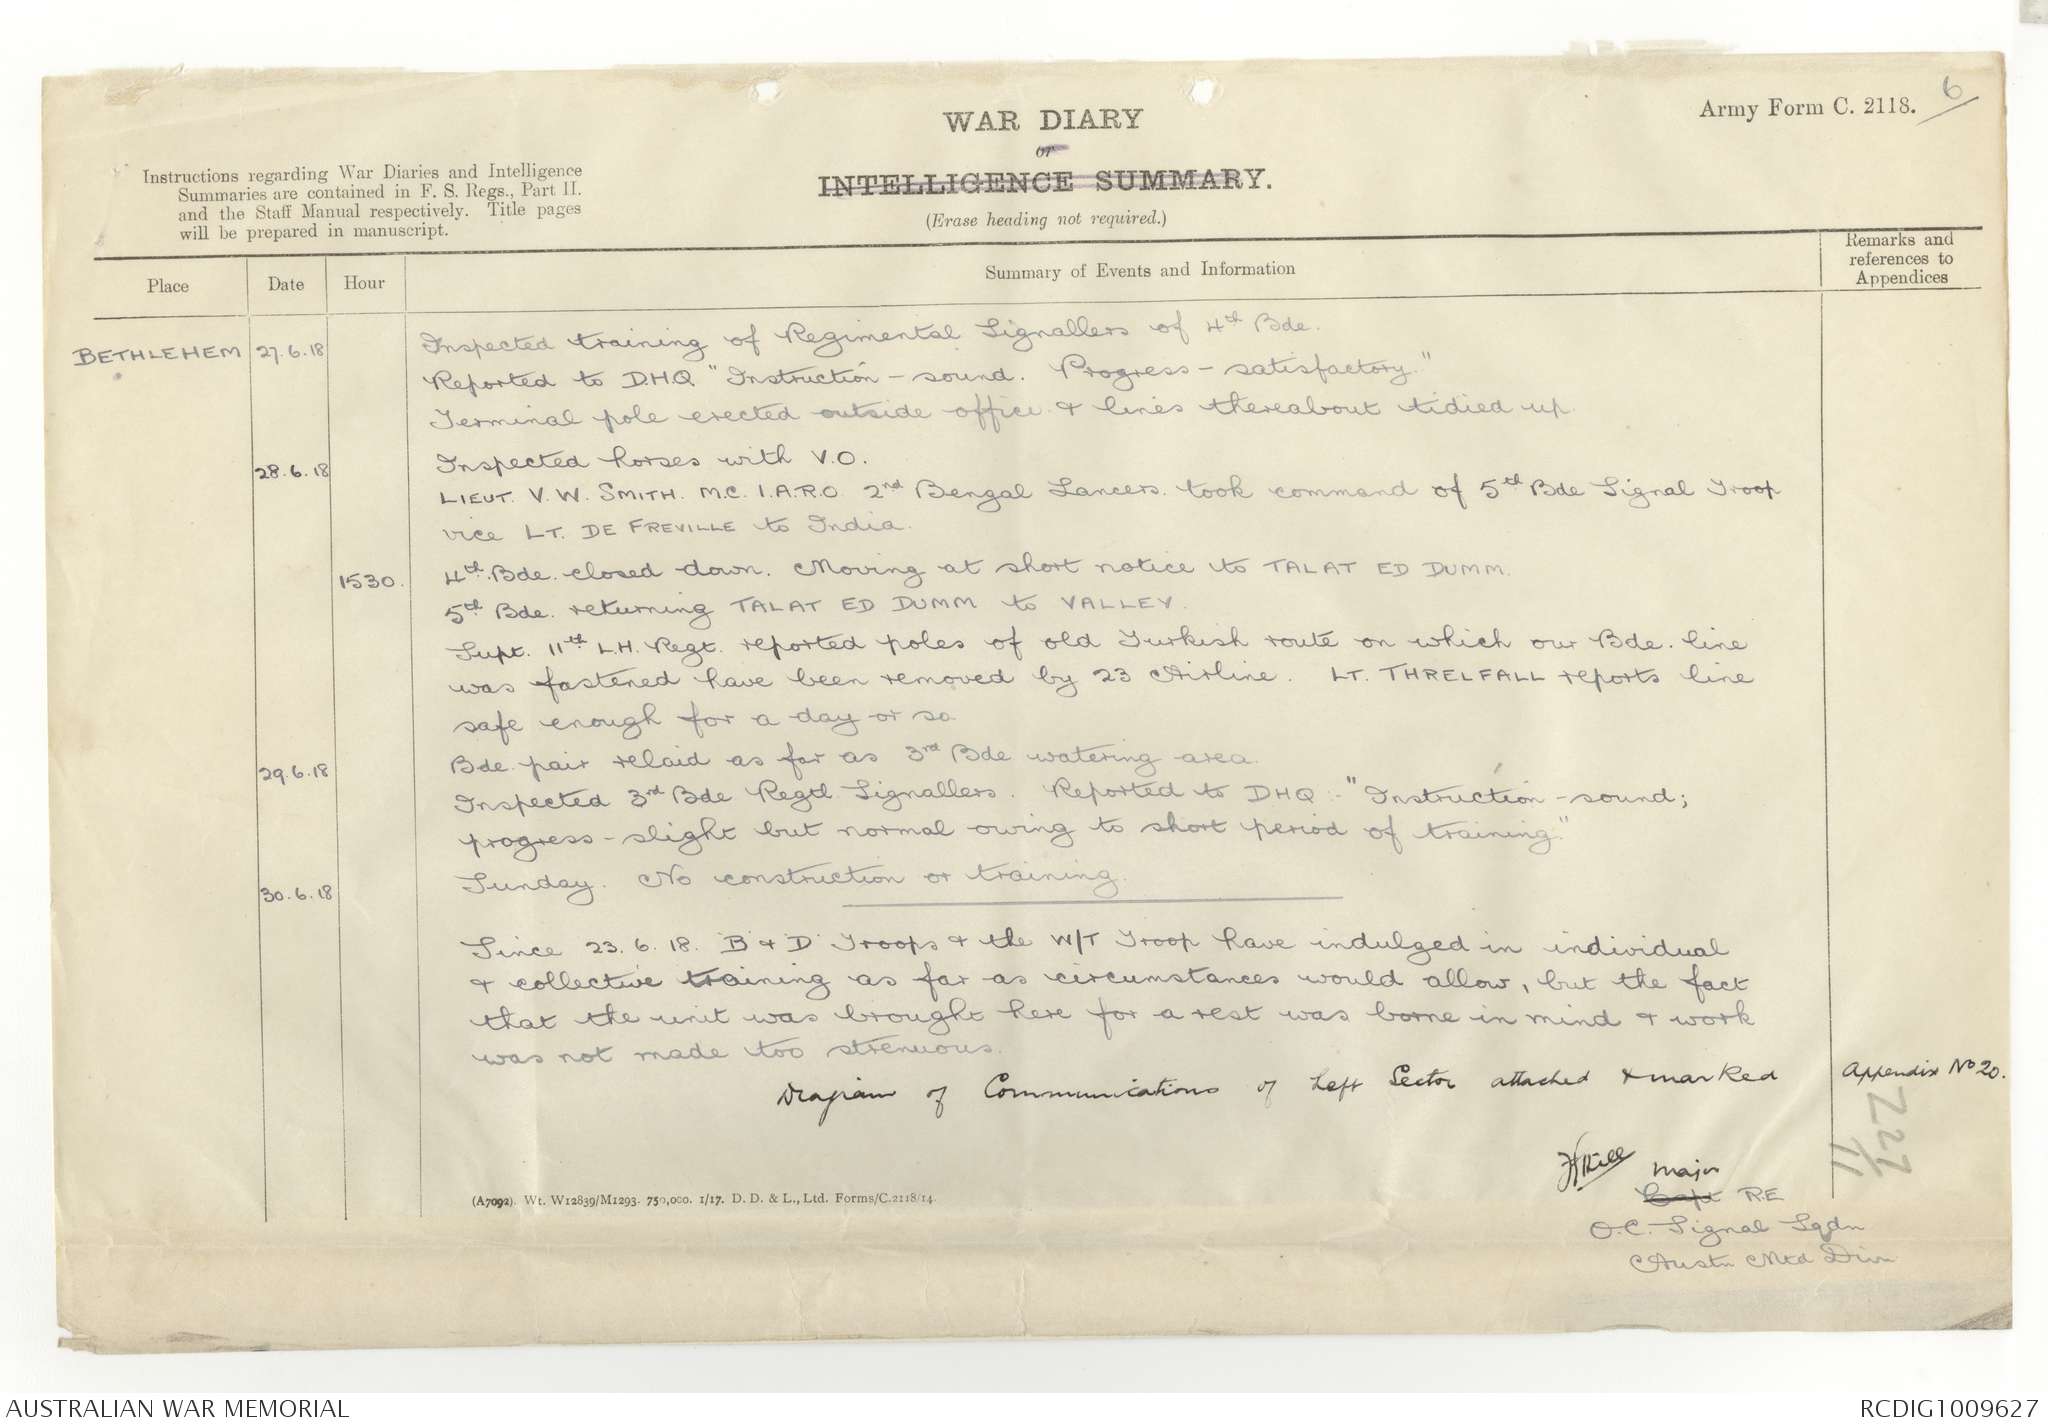 Army Form C. 2118.
6
WAR DIARY
or
INTELLIGENCE SUMMARY.
(Erase heading not required.)
Instructions regarding War Diaries and Intelligence
Summaries are contained in F. S. Regs., Part II.
and the Staff Manual respectively. Title pages
will be prepared in manuscript.
Place
Date
Hour
Summary of Events and Information
Remarks and
references to
Appendices
BETHLEHEM 27.6.18 Inspected training of Regimental Signallers of 4th Bde.
Reported to D.H.Q. "Instruction - sound. Progress - satisfactory."
Terminal pole erected outside office & lines thereabout tidied up.
28.6.18 Inspected horses with V.O.
LIEUT. V. W. SMITH. M.C. I.A.R.O. 2nd Bengal Lancers. took command of 5th Bde Signal Troop
vice LT. DE FREVILLE to India.
1530. 4th Bde. closed down. Moving at short notice to TALAT ED DUMM.
5th Bde. returning TALAT ED DUMM to VALLEY.
Supt. 11th L.H. Regt. reported poles of old Turkish route on which our Bde. line
was fastened have been removed by 23 Airline. LT. THRELFALL reports line
safe enough for a day or so.
29.6.18 Bde pair relaid as far as 3rd Bde watering area.
Inspected 3rd Bde Regtl. Signallers. Reported to DHQ :- "Instruction - sound;
progress - slight but normal owing to short period of training."
30.6.18 Sunday. No construction or training.
Since 23.6.18. 'B' & 'D' Troops & the W/T Troop have indulged in individual
& collective training as far as circumstances would allow, but the fact
that the unit was brought here for a rest was borne in mind & work
was not made too strenuous.
Diagram of Communications of Left Sector attached & marked Appendix No 20.
227
11
Major
Capt R.E
O.C. Signal Sqdn
Austn Mtd Divn
(A7092). Wt. W12839/M1293. 750,000. 1/17. D. D. & L., Ltd. Forms/C.2118/14.
AUSTRALIAN WAR MEMORIAL
RCDIG1009627